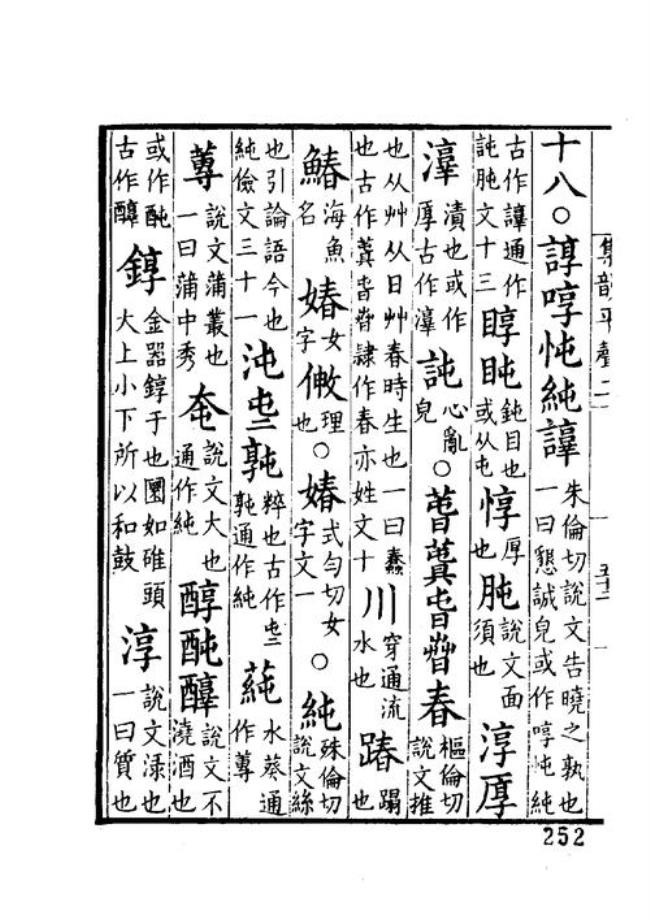 集韻平聲二
五十二
十八○諄啍忳純 朱倫切說文告曉之孰也一曰懇誠皃或作啍忳純
古作通作訰肫文十三 盹 鈍目也或从屯 惇 厚也 肫 說文面須也 淳厚
漬也或作厚古作 訰 心亂皃○萅旾春 樞倫切說文推
也从艸从日艸春時生也一曰蠢也古作旾隸作春亦姓文十 川 穿通流水也 踳 蹋也
鰆 海魚名 媋 女字 理也○媋 式勻切女字文一○純 殊倫切說文絲
也引論語今也純儉文三十一 沌 粹也古作通作純 蒓 水葵通作蓴
蓴 說文蒲叢也一曰蒲中秀 說文大也通作純 醇䣩 說文不澆酒也
或作䣩古作 錞 金器錞于也圜如碓頭大上小下所以和鼓 淳 說文淥也一曰質也
252